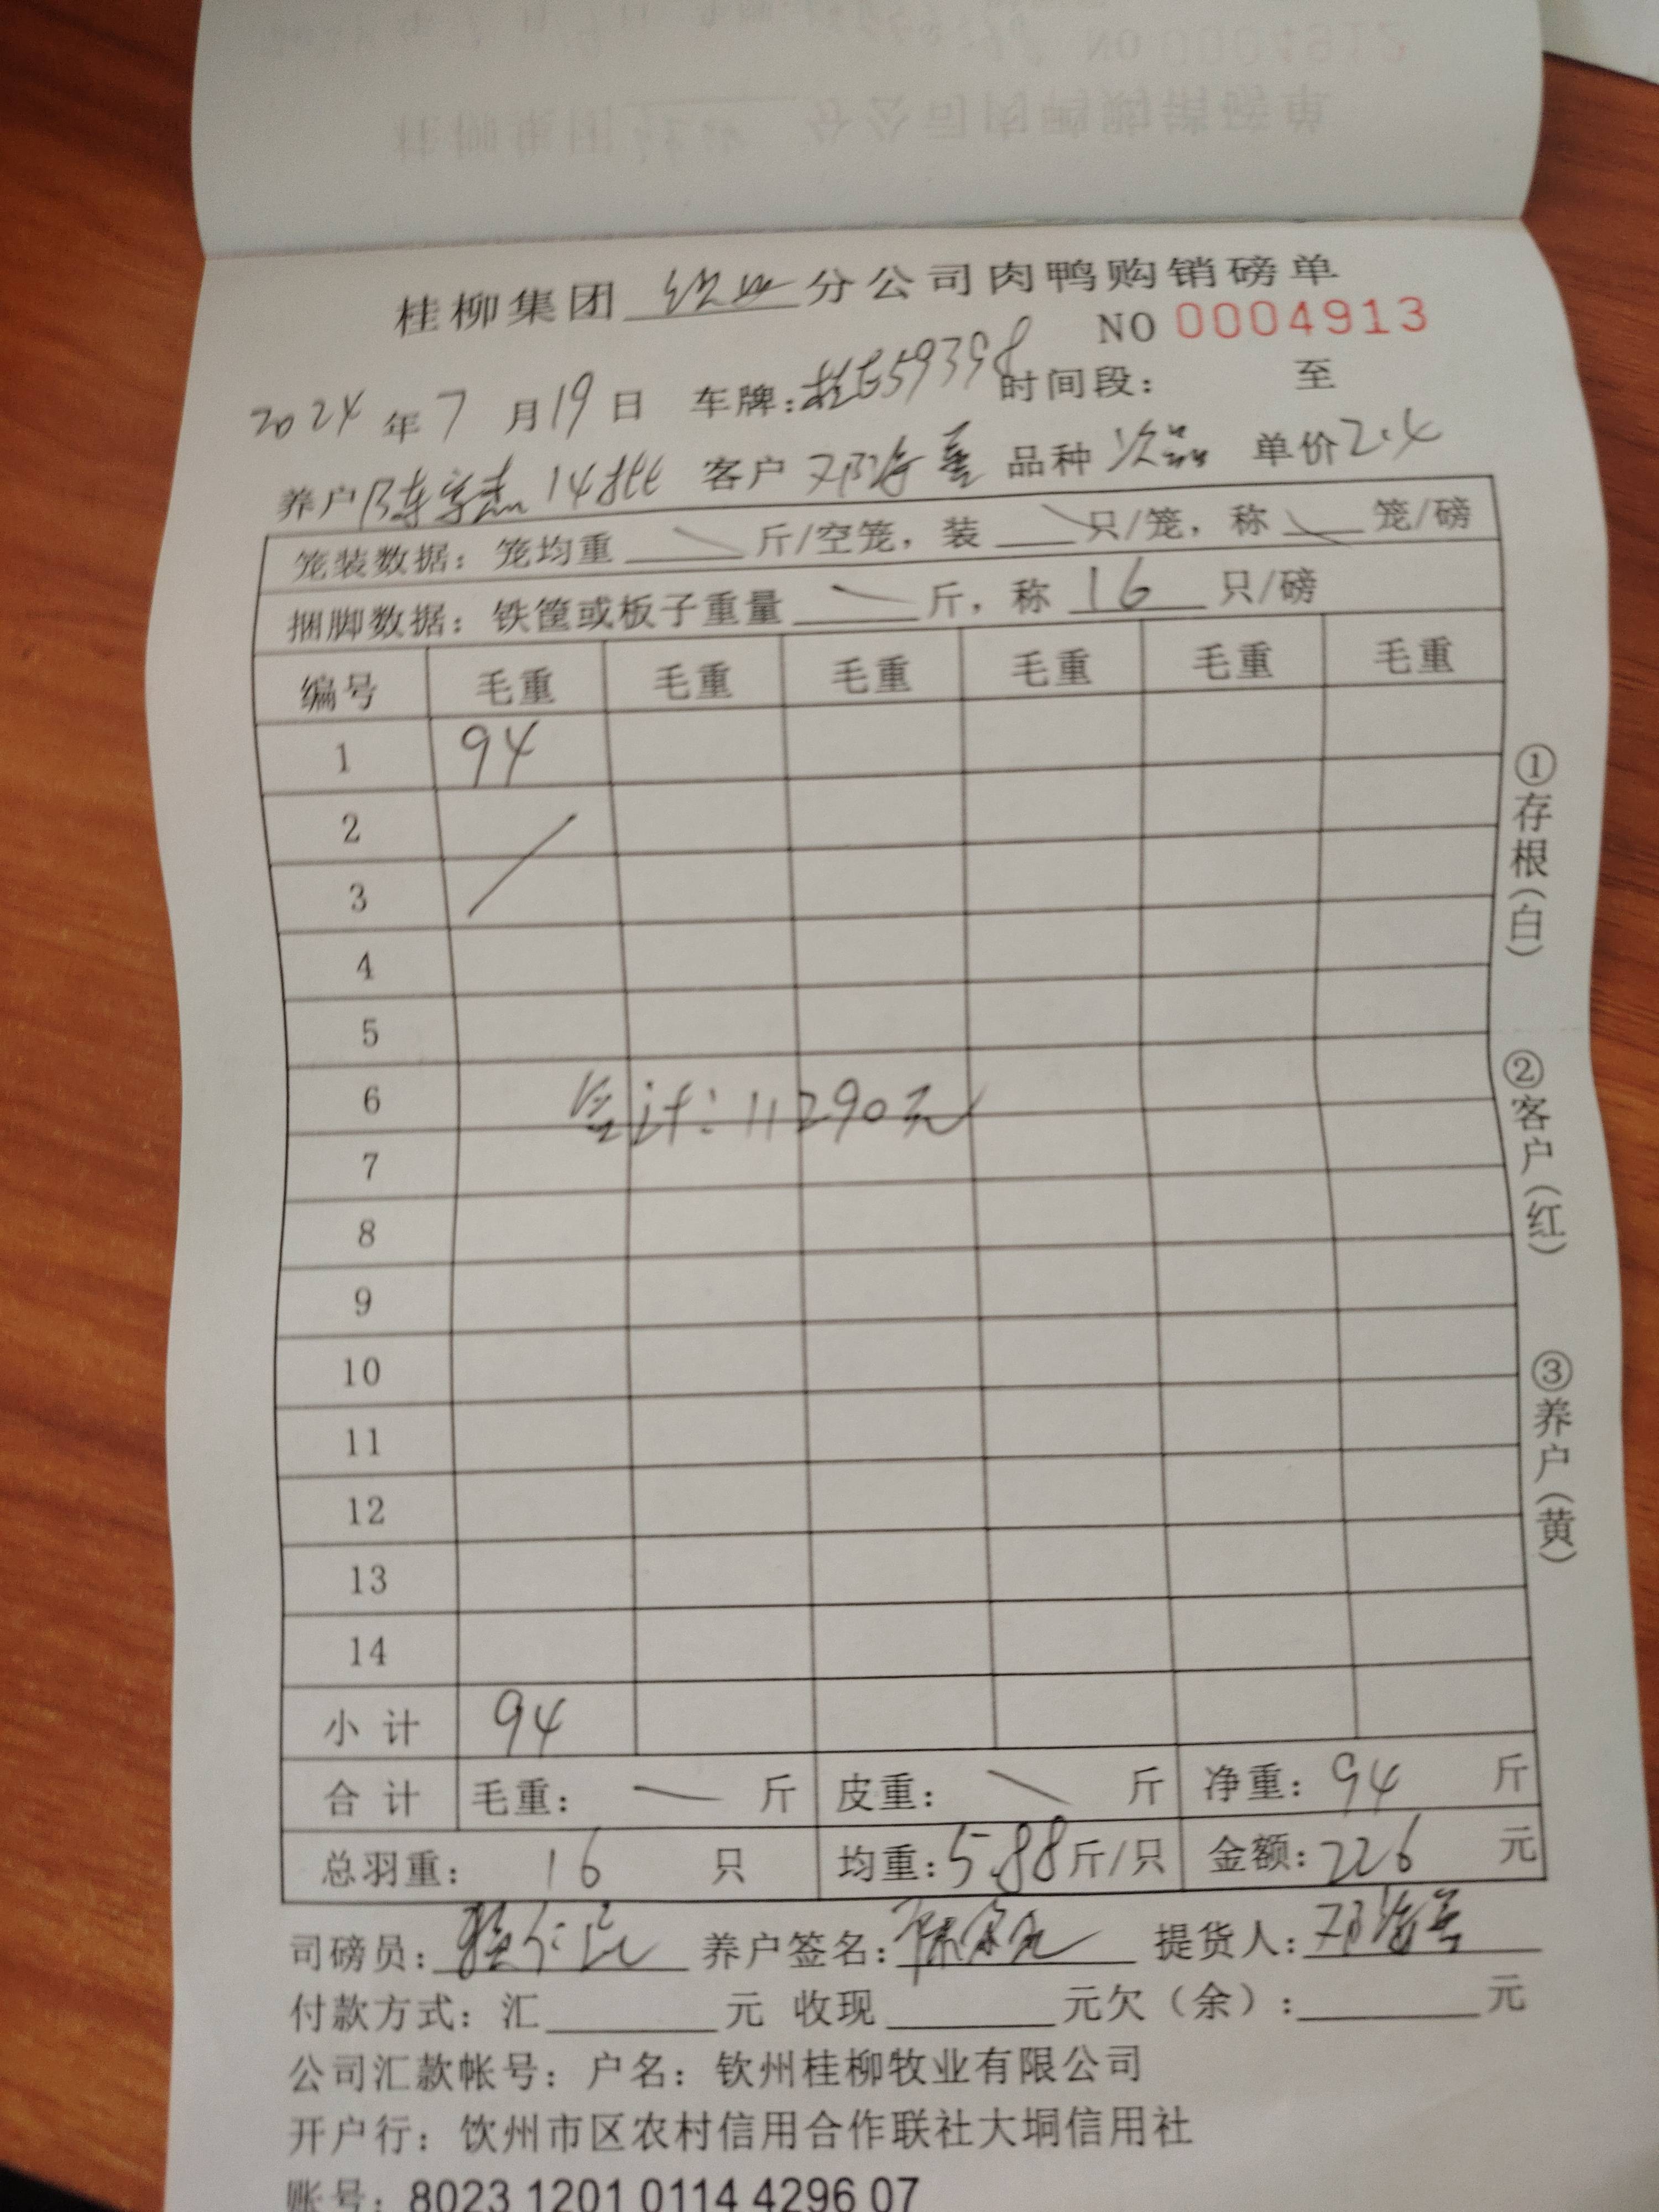 NO 0004912
桂柳集团 分公司肉鸭购销磅单
桂柳集团 分公司肉鸭购销磅单
NO 0004913
2024 年 7 月 19 日 车牌:桂E59398 时间段: 至
养户 陈字杰 14批 客户 邓海善 品种 次品 单价 2.4
笼装数据:笼均重 斤/空笼,装 只/笼,称 笼/磅
捆脚数据:铁筐或板子重量 斤,称 16 只/磅
编号 毛重 毛重 毛重 毛重 毛重 毛重
1 94
2
3
4
5
6
合计:11290元
7
8
9
10
11
12
13
14
小计 94
合计 毛重: 斤 皮重: 斤 净重:94 斤
总羽重: 16 只 均重:5.88 斤/只 金额:226 元
司磅员: 养户签名: 提货人:邓海善
付款方式:汇 元 收现 元欠(余): 元
公司汇款帐号:户名:钦州桂柳牧业有限公司
开户行:饮州市区农村信用合作联社大垌信用社
账号:8023 1201 0114 4296 07
①存根(白)
②客户(红)
③养户(黄)